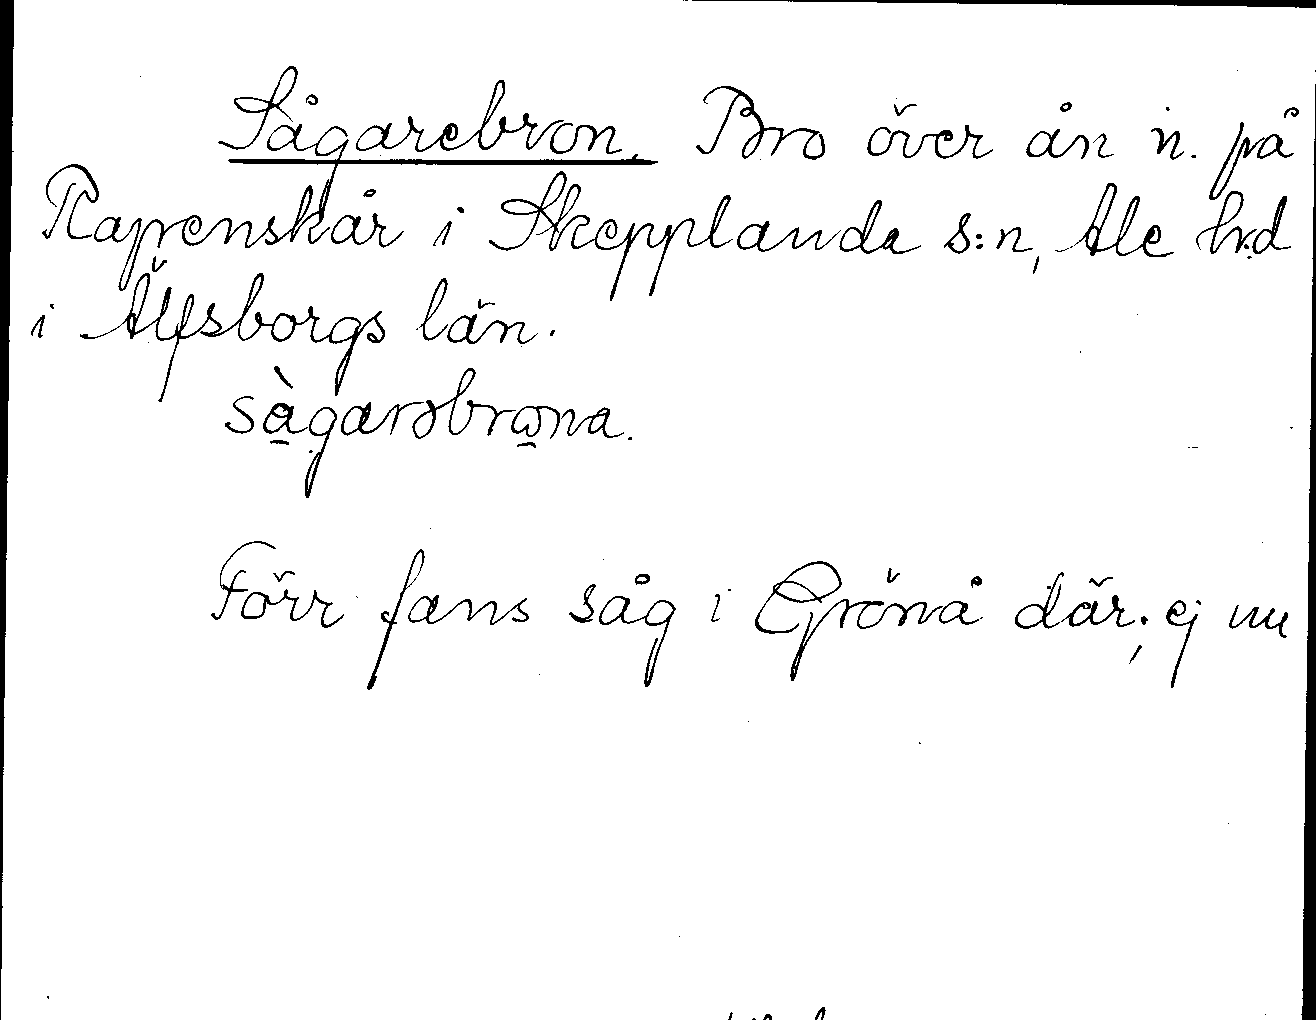 Sågarebron. Bro över ån n. på
Rapenskår i Skepplanda s:n, Ale hrd
i Älfsborgs län.
sàgarəbrωna.
Förr fans såg i Grönå där; ej nu